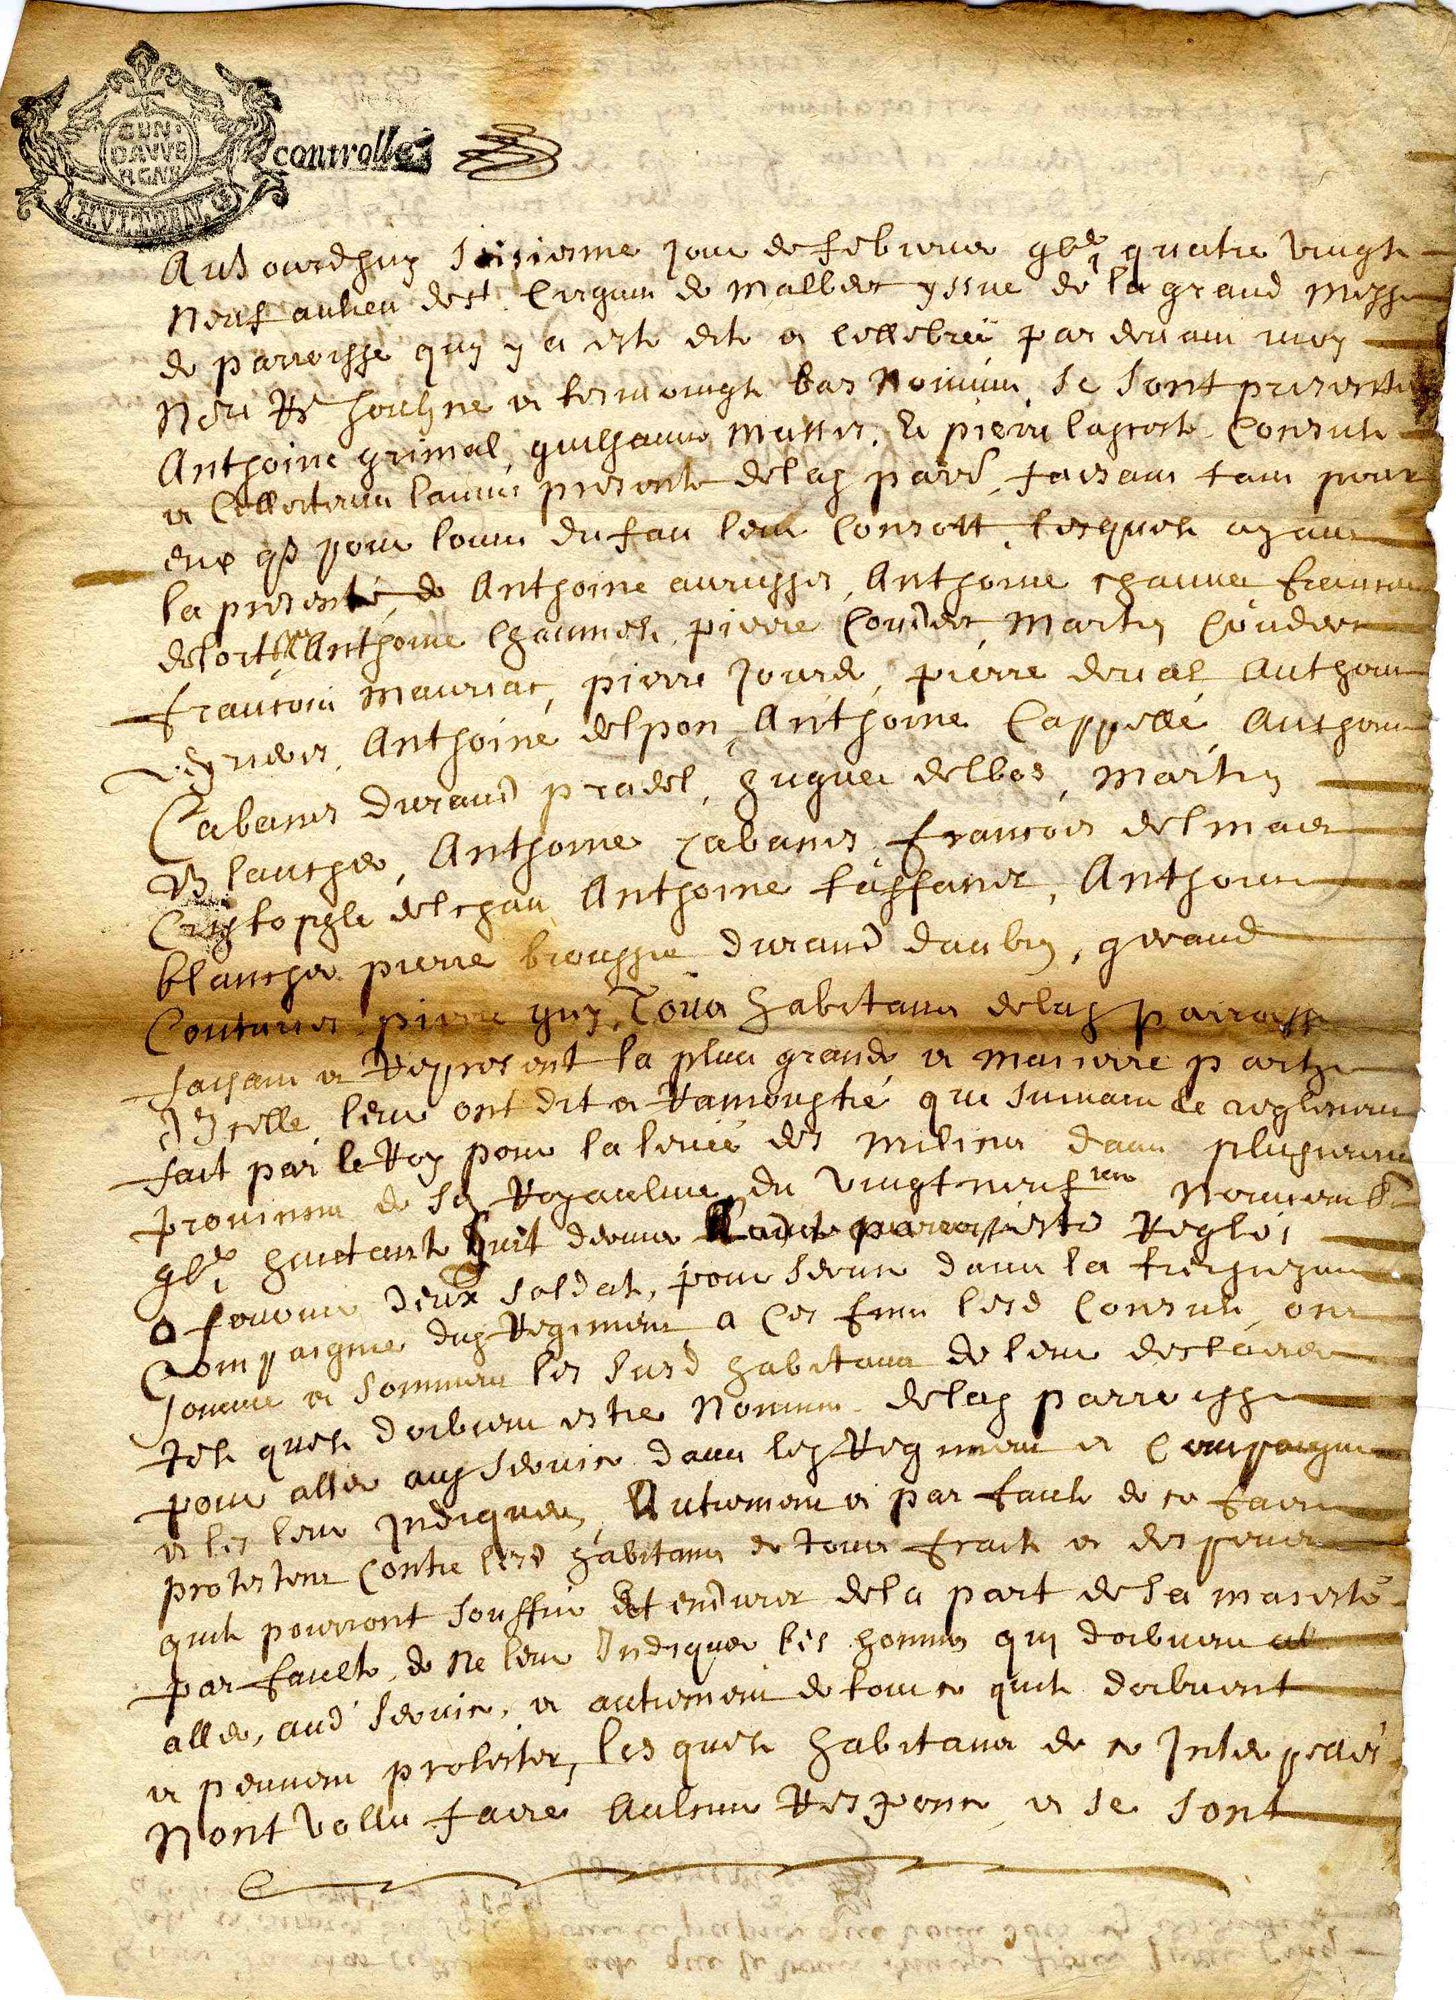 GUN.
DAVVE
AGNE
HVLTDEN. G
controlle
Aujourdhuy seisiesme jour de febvrier gbc quatre vingts
neuf au lieu de st Cirguin de Malbert yssue de la grand messe
de parroisse quy y a este dite et cellebree par devant moy
Nore Rl soubzne et tesmoingts bas nommes, se sont presentes
Anthoine grimal, guilhaume Masses, et pierre lacroste Consuls
et Collecteurs lannee presente de lad parr, faisant tant pour
eux que pour louis du fau leur Consort, lesquels ayant
la presente, de Anthoine aurusses, Anthoine chaumes francois
delort Anthoine Chaumeils, pierre Couderc, Martin Couderc
francois Mauriac, pierre Jourde, pierre deval, Anthoine
Anthoine delpon, Anthoine Cappelle, Anthoine
Cabanes durand pradel, hugues delbos, Martin
Blanches, Anthoine Cabanes francois delmas
Cristophle delchau Anthoine taffanel, Anthoine
blanches pierre broussie durand daubin, geraud
Couturies pierre guy, Tous habitans de lad parroisse
faisant et Represent la plus grande et maieure partye
dycelle, leur ont dit et Ramonstré que suivant le reglement
fait par le Roy pour la levée des milices dans plusieurs
provinces de son Royaulme du vingt neufiesme novembre
gbc huictante huit dernier ladite parroisse este Reglée
a fournir deux soldats, pour servir dans la
Compaignie dud Regiment a Ces fins lesd Consuls ont
somme et somment les susd habitans de leur desclairer
tels quels doibvent estre nommes de lad parroisse
pour aller aud service dans led Regiment et Compaignie
et les leur Indiquer, Autrement et par faute de ce faire
protestent Contre lesd habitans de tous fraits et despens
quils pourront souffrir et endurer de la part de sa maieste
par faulte de ne leur Indiquer les hommes quy doibvent
aller, aud service, et autrement de tout ce quils doibvent
et peuvent protester, lesquels habitans de ce Interpellés
Nont vollu faire aulcune Responce et se sont